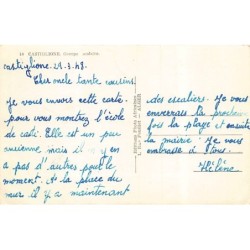 CASTIGLIONE. Groupe scolaire
Castiglione. 29.3.48.
Cher oncle tante cousins
Je vous envoie cette carte
pour vous montrez l'école
de casti. Elle est un peu
ancienne mais il n'y en
a pas d'autres pour le
moment. A la place du
mur il y a maintenant
des escaliers. Je vous
enverrais la prochaine
fois la plage et ensuite
la mairie. Je vous
embrasse à tous
Hélène